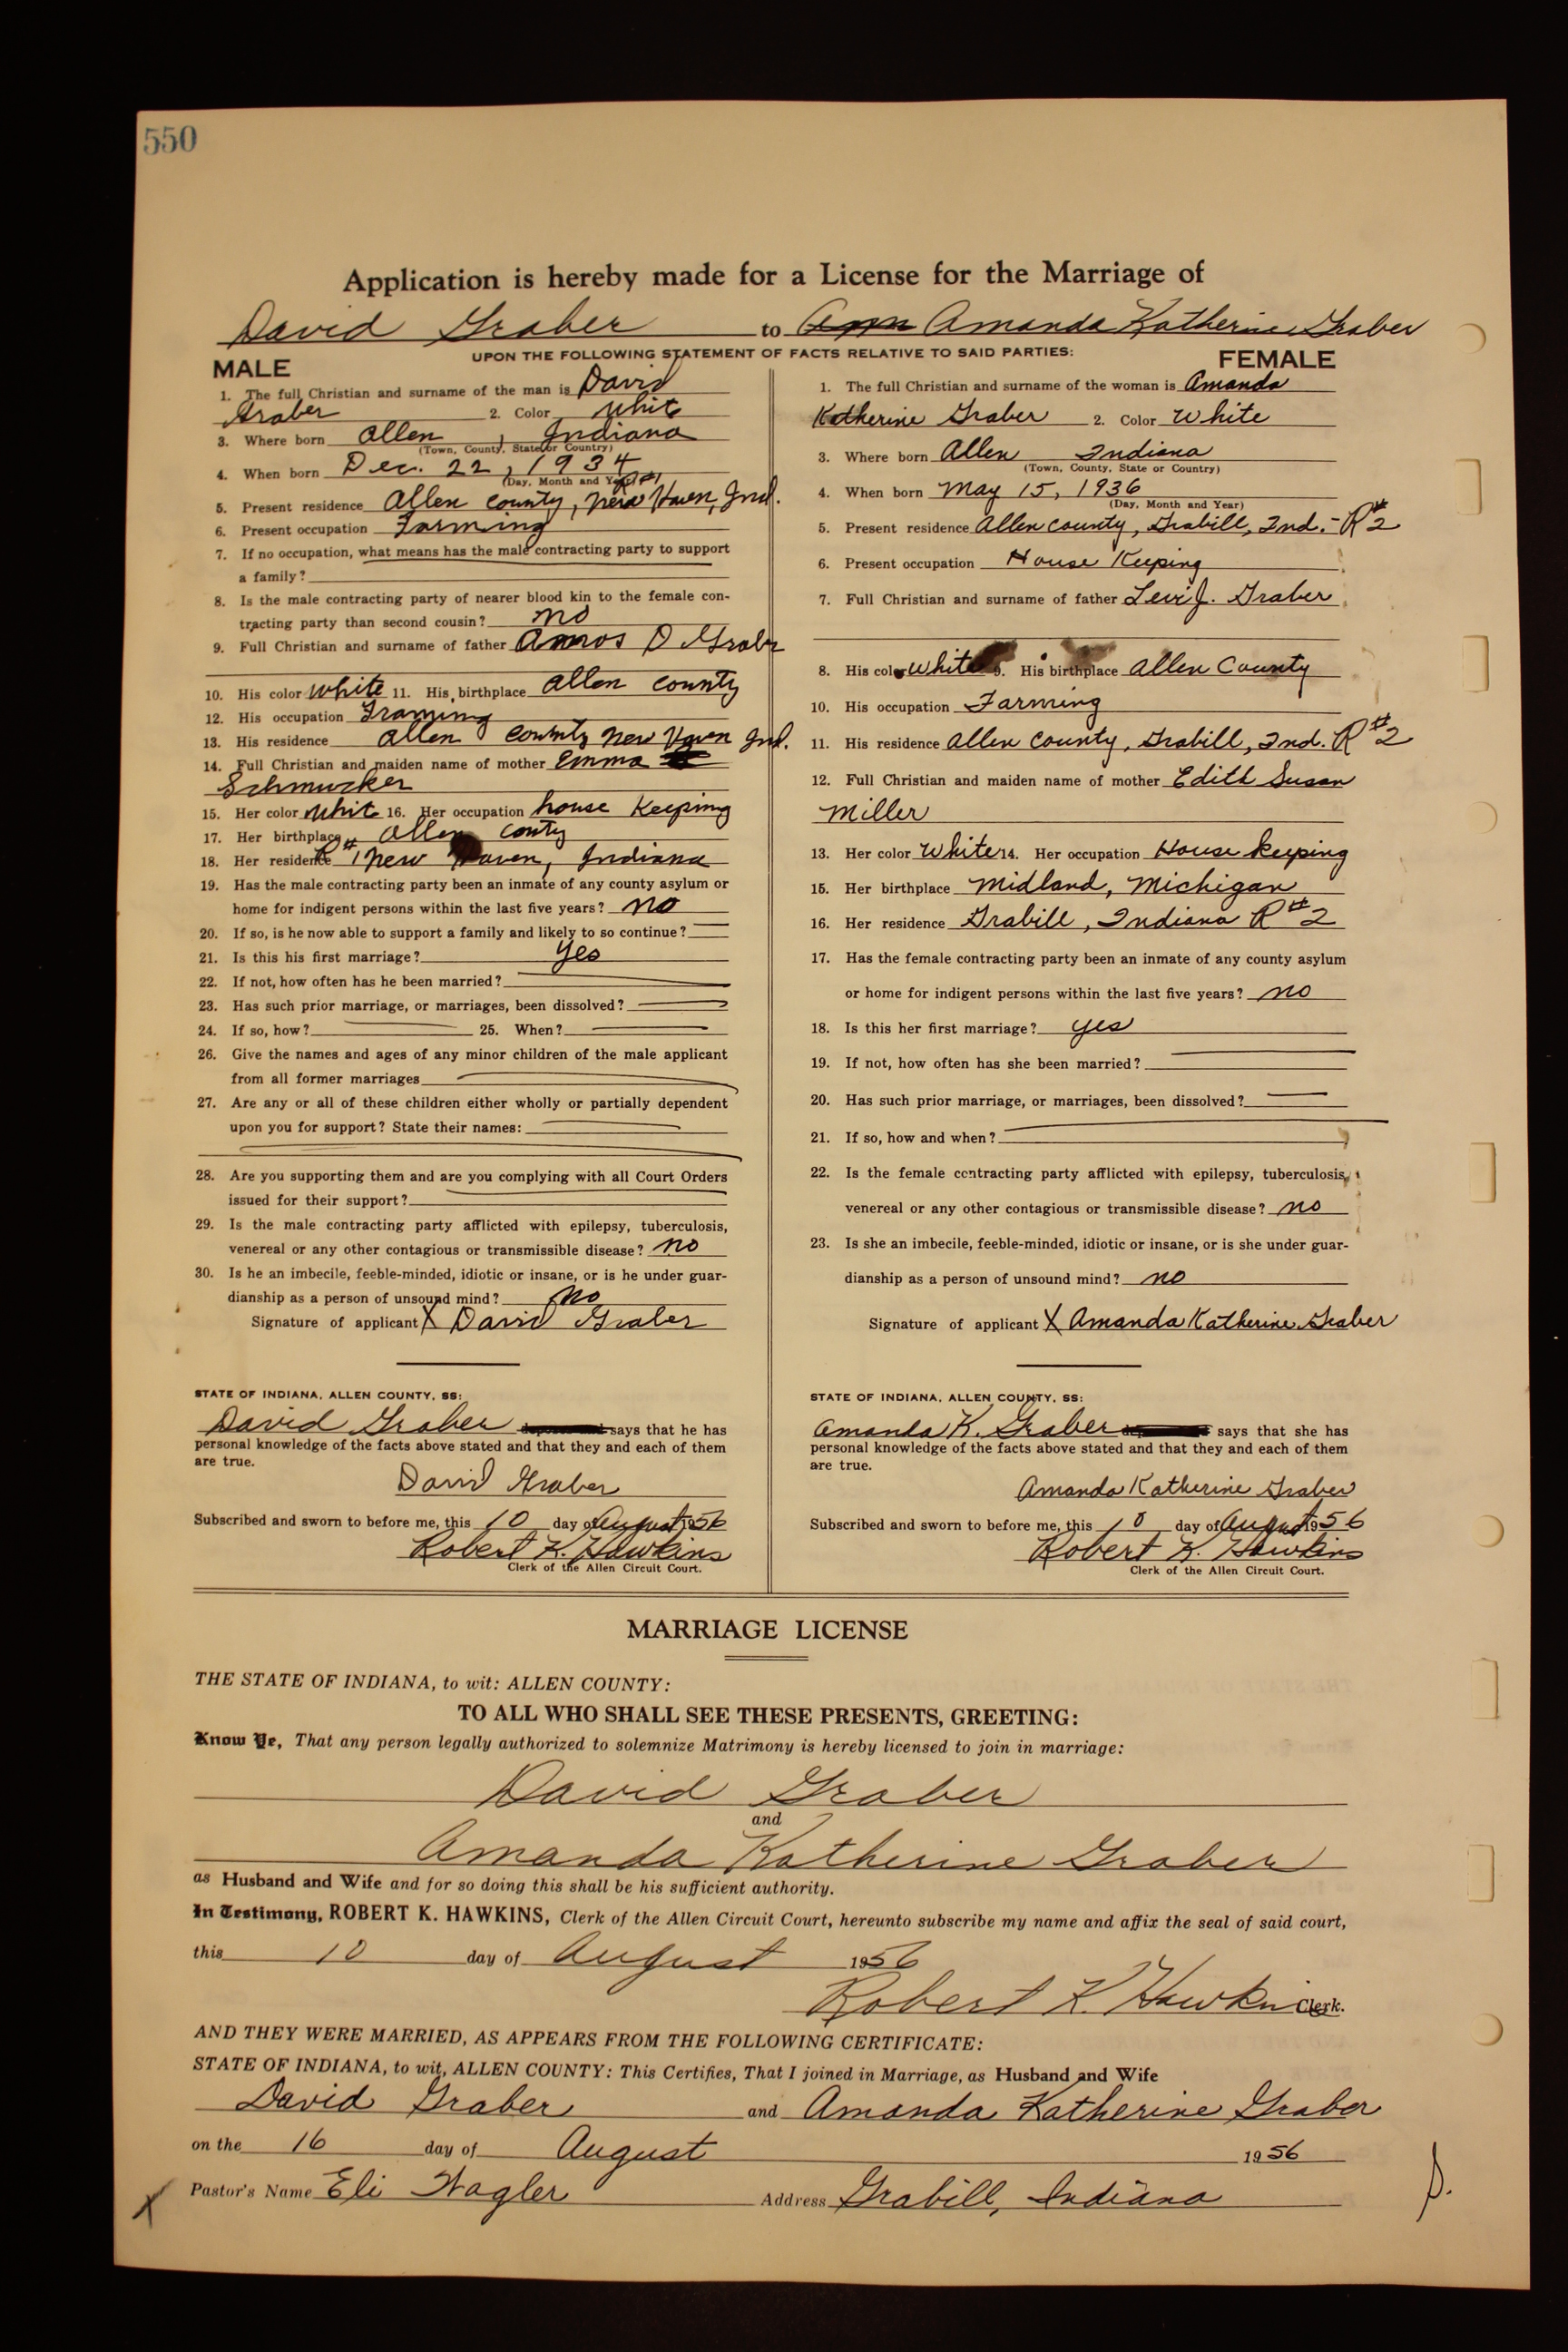 550
Application is hereby made for a License for the Marriage of
David Graber to Amanda Katherine Graber
UPON THE FOLLOWING STATEMENT OF FACTS RELATIVE TO SAID PARTIES:
MALE
1. The full Christian and surname of the man is David
Graber 2. Color White
3. Where born Allen, Indiana
(Town, County, State or Country)
4. When born Dec. 22, 1934
(Day, Month and Year)
R#1
5. Present residence Allen County, New Haven, Ind.
6. Present occupation Farming
7. If no occupation, what means has the male contracting party to support
a family?
8. Is the male contracting party of nearer blood kin to the female con-
tracting party than second cousin? no
9. Full Christian and surname of father Amos D Graber
10. His color White 11. His birthplace Allen County
12. His occupation Framing
13. His residence Allen County New Haven Ind.
14. Full Christian and maiden name of mother Emma
Schmucker
15. Her color White 16. Her occupation house Keeping
17. Her birthplace Allen conty
18. Her residence R#1 New Haven, Indiana
19. Has the male contracting party been an inmate of any county asylum or
home for indigent persons within the last five years? no
20. If so, is he now able to support a family and likely to so continue?
21. Is this his first marriage? yes
22. If not, how often has he been married?
23. Has such prior marriage, or marriages, been dissolved?
24. If so, how? 25. When?
26. Give the names and ages of any minor children of the male applicant
from all former marriages
27. Are any or all of these children either wholly or partially dependent
upon you for support? State their names:
28. Are you supporting them and are you complying with all Court Orders
issued for their support?
29. Is the male contracting party afflicted with epilepsy, tuberculosis,
venereal or any other contagious or transmissible disease? no
30. Is he an imbecile, feeble-minded, idiotic or insane, or is he under guar-
dianship as a person of unsound mind? no
Signature of applicant X David Graber
STATE OF INDIANA, ALLEN COUNTY, SS:
David Graber says that he has
personal knowledge of the facts above stated and that they and each of them
are true.
David Graber
Subscribed and sworn to before me, this 10 day of August 1956
Robert K. Hawkins
Clerk of the Allen Circuit Court.
FEMALE
1. The full Christian and surname of the woman is Amanda
Katherine Graber 2. Color White
3. Where born Allen Indiana
(Town, County, State or Country)
4. When born May 15, 1936
(Day, Month and Year)
5. Present residence Allen County, Grabill, Ind. - R#2
6. Present occupation House Keeping
7. Full Christian and surname of father Levi J. Graber
8. His color White 9. His birthplace Allen County
10. His occupation Farming
11. His residence Allen County, Grabill, Ind. R#2
12. Full Christian and maiden name of mother Edith Susan
Miller
13. Her color White 14. Her occupation House keeping
15. Her birthplace Midland, Michigan
16. Her residence Grabill, Indiana R#2
17. Has the female contracting party been an inmate of any county asylum
or home for indigent persons within the last five years? no
18. Is this her first marriage? yes
19. If not, how often has she been married?
20. Has such prior marriage, or marriages, been dissolved?
21. If so, how and when?
22. Is the female contracting party afflicted with epilepsy, tuberculosis,
venereal or any other contagious or transmissible disease? no
23. Is she an imbecile, feeble-minded, idiotic or insane, or is she under guar-
dianship as a person of unsound mind? no
Signature of applicant X Amanda Katherine Graber
STATE OF INDIANA, ALLEN COUNTY, SS:
Amanda K. Graber says that she has
personal knowledge of the facts above stated and that they and each of them
are true.
Amanda Katherine Graber
Subscribed and sworn to before me, this 10 day of August 1956
Robert K. Hawkins
Clerk of the Allen Circuit Court.
MARRIAGE LICENSE
THE STATE OF INDIANA, to wit: ALLEN COUNTY:
TO ALL WHO SHALL SEE THESE PRESENTS, GREETING:
Know Ye, That any person legally authorized to solemnize Matrimony is hereby licensed to join in marriage:
David Graber
and
Amanda Katherine Graber
as Husband and Wife and for so doing this shall be his sufficient authority.
In Testimony, ROBERT K. HAWKINS, Clerk of the Allen Circuit Court, hereunto subscribe my name and affix the seal of said court,
this 10 day of August 1956
Robert K. Hawkins Clerk.
AND THEY WERE MARRIED, AS APPEARS FROM THE FOLLOWING CERTIFICATE:
STATE OF INDIANA, to wit, ALLEN COUNTY: This Certifies, That I joined in Marriage, as Husband and Wife
David Graber and Amanda Katherine Graber
on the 16 day of August 1956
X Pastor's Name Eli Wagler Address Grabill, Indiana